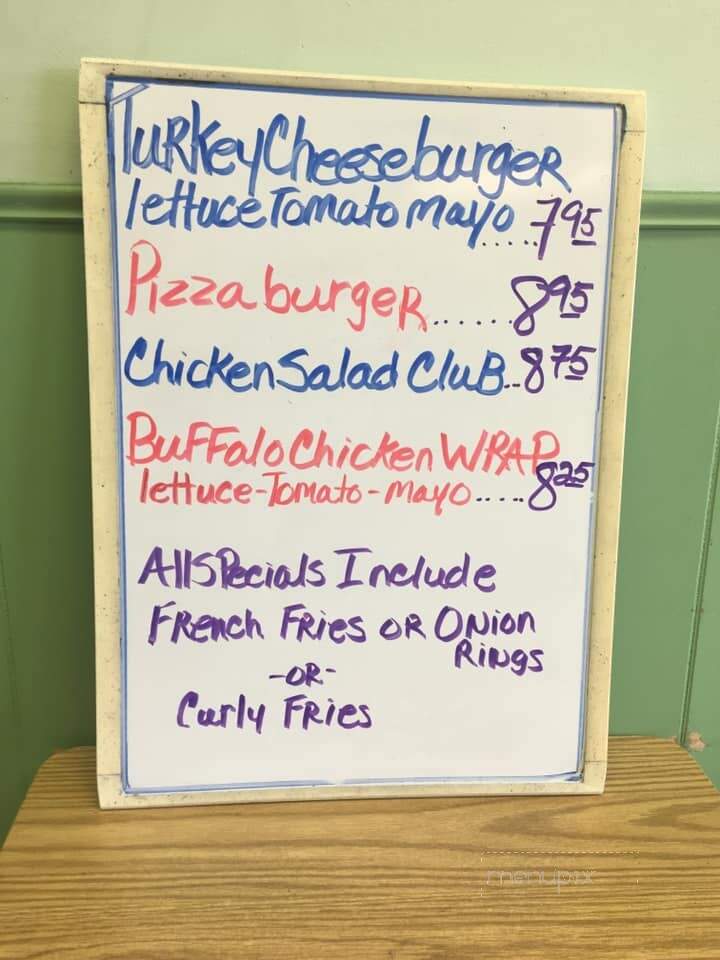 Turkey Cheeseburger
lettuce Tomato mayo ..... 7.95
Pizza burger ...... 8.95
Chicken Salad Club .. 8.75
Buffalo Chicken WRAP
lettuce - Tomato - mayo ..... 8.25
All Specials Include
French Fries OR Onion
Rings
-OR-
Curly Fries
menupix